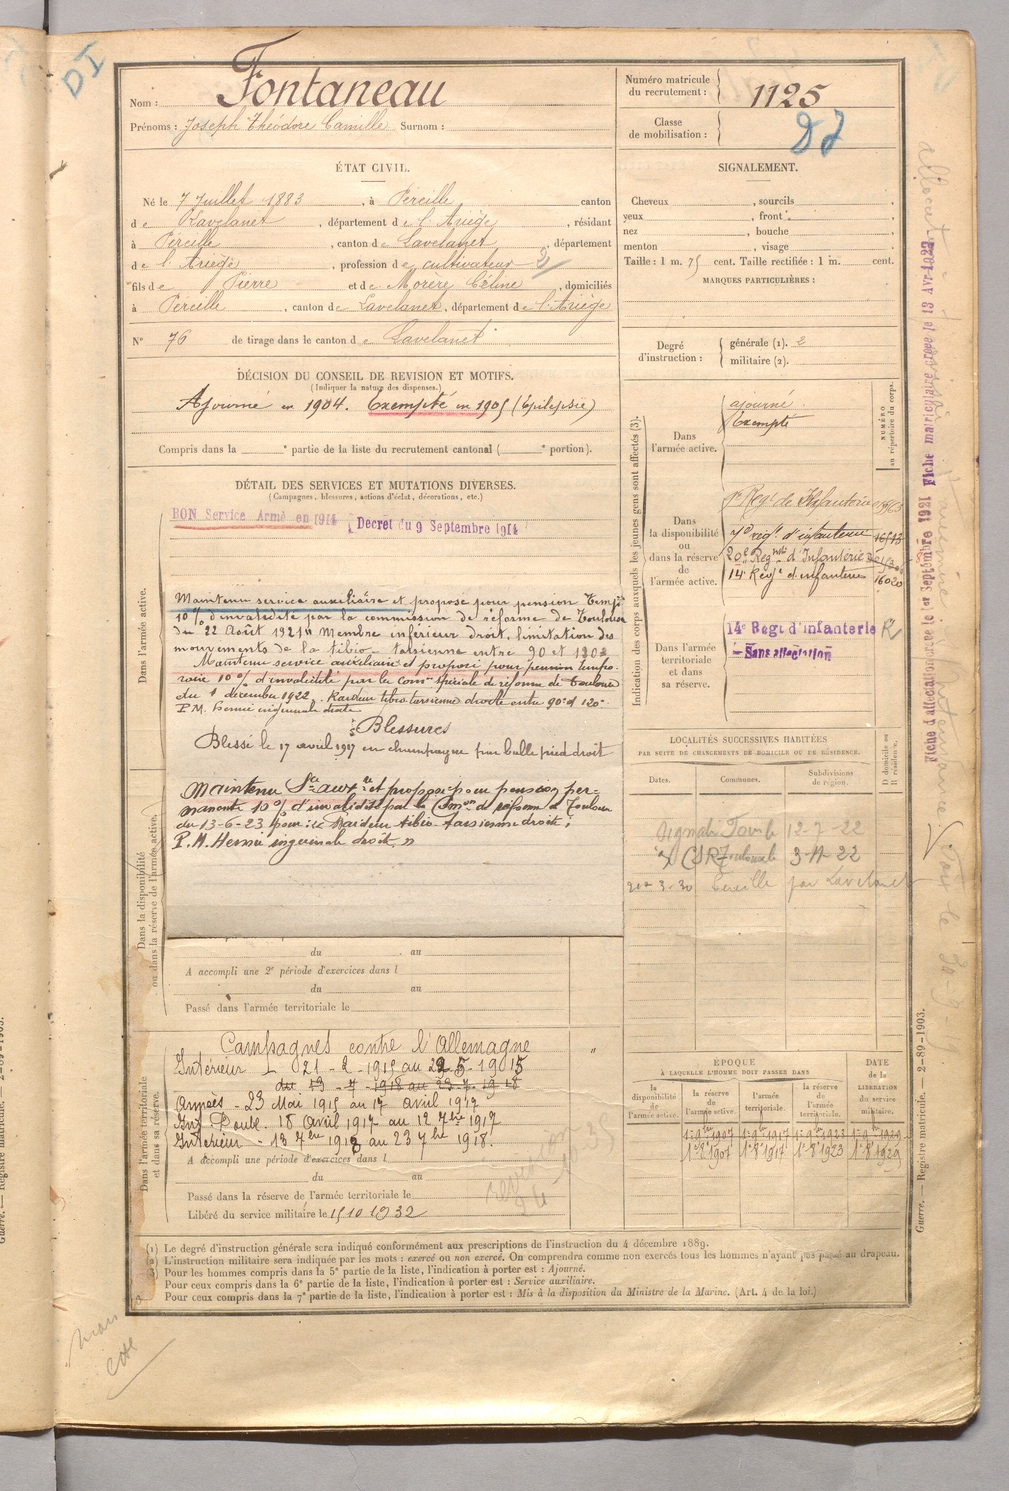 DI
Nom : Fontaneau
Prénoms : Joseph Théodore Camille Surnom :
Numéro matricule du recrutement : 1125
Classe de mobilisation :
ÉTAT CIVIL.
Né le 7 Juillet 1883, à Péreille canton
de Lavelanet, département de l'Ariège, résidant
à Péreille, canton de Lavelanet, département
de l'Ariège, profession de cultivateur
fils de Pierre et de Morère Céline, domiciliés
à Péreille, canton de Lavelanet, département de l'Ariège
N° 76 de tirage dans le canton de Lavelanet
SIGNALEMENT.
Cheveux , sourcils ,
yeux , front ,
nez , bouche ,
menton , visage .
Taille : 1 m. 75 cent. Taille rectifiée : 1 m. cent.
MARQUES PARTICULIÈRES :
Degré d'instruction : générale (1). 2
militaire (2).
DÉCISION DU CONSEIL DE REVISION ET MOTIFS.
(Indiquer la nature des dispenses.)
Ajourné en 1904. Exempté en 1905 (Épilepsie)
Compris dans la e partie de la liste du recrutement cantonal ( e portion).
DÉTAIL DES SERVICES ET MUTATIONS DIVERSES.
(Campagnes, blessures, actions d'éclat, décorations, etc.)
BON Service Armé en 1914 Décret du 9 Septembre 1914
Dans l'armée active.
Maintenu service auxiliaire et proposé pour pension temp
10% d'invalidité par la commission de réforme de Toulouse
du 22 Août 1921 Membre inférieur droit, limitation des
mouvements de la tibio-tarsienne entre 90 et
Maintenu service auxiliaire et proposé pour pension tempo-
raire 10% d'invalidité par la Comon spéciale de réforme de Toulouse
du 1 décembre 1922. Raideur tibio tarsienne droite entre 90° et 120°
P.M. hernie inguinale droite
Blessures
Blessé le 17 avril 1917 en champagne par balle pied droit
Maintenu Sce auxre et proposé pour pension per-
manente 10% d'invalidité par la Cmon de réforme de Toulouse
du 13-6-23 pour : Raideur tibio-tarsienne droite ;
P.M. Hernie inguinale droite "
Dans la disponibilité ou dans la réserve de l'armée active.
du au
A accompli une 2e période d'exercices dans l
du au
Passé dans l'armée territoriale le
Dans l'armée territoriale et dans sa réserve.
Campagnes contre l'Allemagne
Intérieur 21-2-1915 au 22 5-1915
du 13-7-1918 au 23-7-1918
Armées - 23 Mai 1915 au 17 avril 1917
Int. 18 avril 1917 au 12 7bre 1917
Intérieur - 13 7bre 1918 au 23 7bre 1918.
A accompli une période d'exercices dans l
du au
Passé dans la réserve de l'armée territoriale le
Libéré du service militaire le 15 10 1932
Indication des corps auxquels les jeunes gens sont affectés (3).
NUMÉRO au répertoire du corps.
Dans l'armée active. ajourné.
Exempté
Dans la disponibilité ou dans la réserve de l'armée active.
Régt de Infanterie
régt d'infanterie
20e Regmt d'Infanterie
14e Régt d'infanterie 16020
Dans l'armée territoriale et dans sa réserve.
14e Régt d'infanterie
Sans affectation
LOCALITÉS SUCCESSIVES HABITÉES
PAR SUITE DE CHANGEMENTS DE DOMICILE OU DE RÉSIDENCE.
Dates. Communes. Subdivisions de région. D domicile ou R résidence.
12-7-22
CSR Toulouse 3-11-22
3-30 Péreille par Lavelanet
ÉPOQUE
À LAQUELLE L'HOMME DOIT PASSER DANS
la disponibilité de l'armée active. la réserve de l'armée active. l'armée territoriale. la réserve de l'armée territoriale. DATE de la LIBÉRATION du service militaire.
1er 8bre 1907 1er 8bre 1917 1er 8bre 1923 1er 8bre 1929
Fiche d'affectation créée le 1er Septembre 1921 Fiche matriculaire créée le 13 Avr 1922
(1) Le degré d'instruction générale sera indiqué conformément aux prescriptions de l'instruction du 4 décembre 1889.
L'instruction militaire sera indiquée par les mots : exercé ou non exercé. On comprendra comme non exercés tous les hommes n'ayant pas passé au drapeau.
Pour les hommes compris dans la 5e partie de la liste, l'indication à porter est : Ajourné.
Pour ceux compris dans la 6e partie de la liste, l'indication à porter est : Service auxiliaire.
Pour ceux compris dans la 7e partie de la liste, l'indication à porter est : Mis à la disposition du Ministre de la Marine. (Art. 4 de la loi.)
Guerre. — Registre matricule. — 2-89-1903.